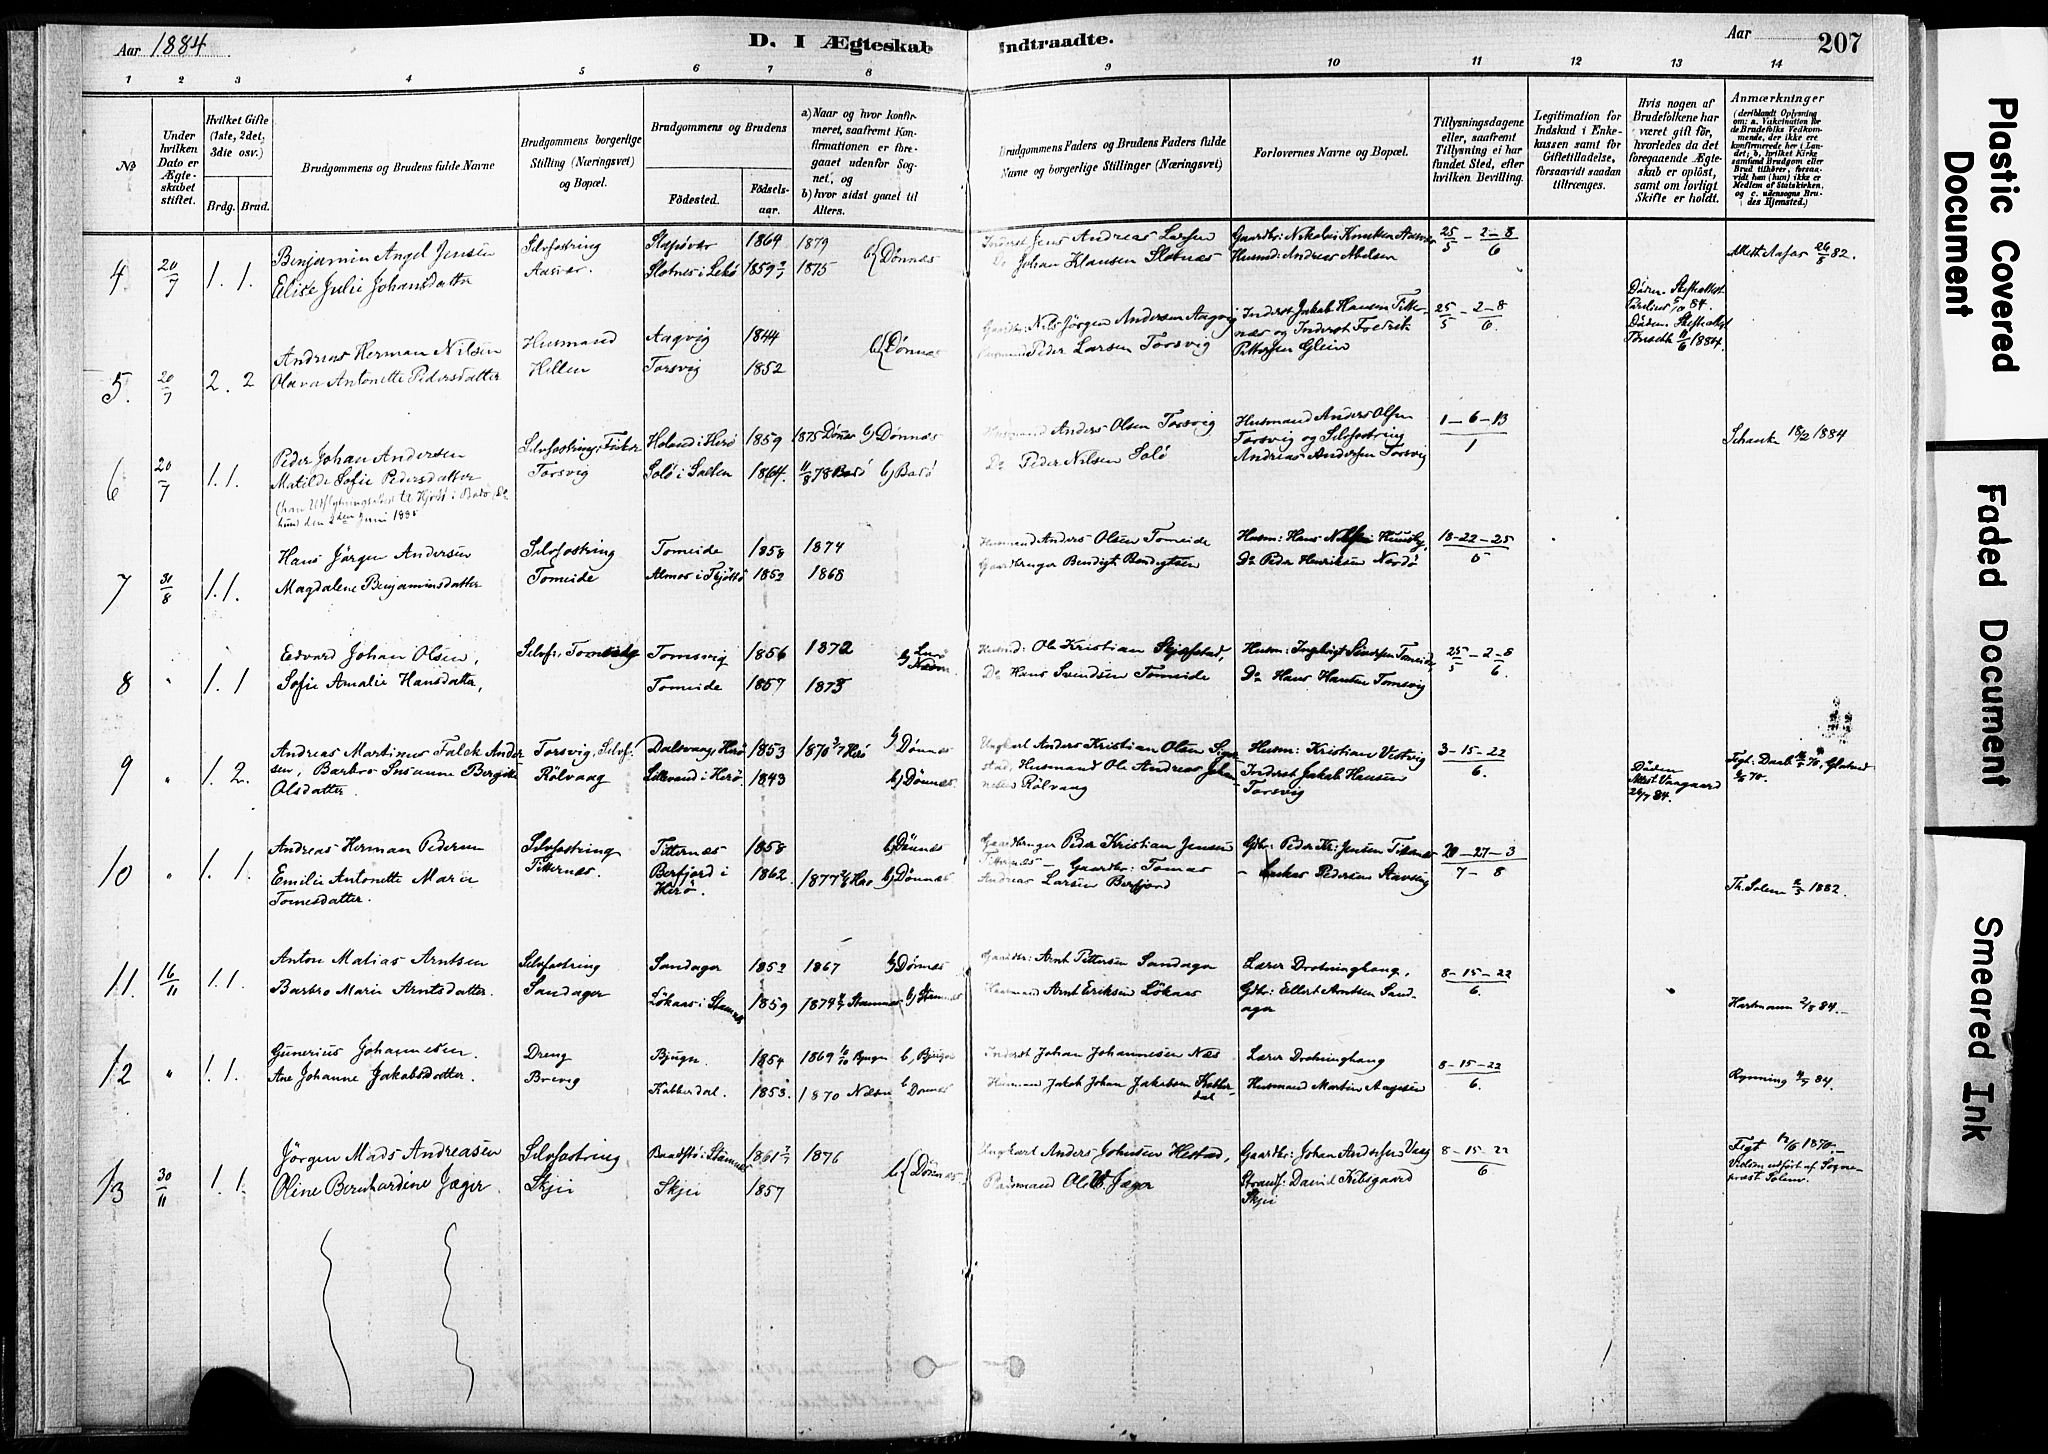 Aar 1884
D. I Ægteskab Indtraadte.
Aar
207
1 2 3 4 5 6 7 8 9 10 11 12 13 14
No
Under hvilken Dato er Ægteskabet stiftet.
Hvilket Gifte (1ste, 2det, 3die osv.)
Brdg. Brud.
Brudgommens og Brudens fulde Navne
Brudgommens borgerlige Stilling (Næringsvei) og Bopæl.
Brudgommens og Brudens
Födested.
Födsels-aar.
a) Naar og hvor konfirmeret, saafremt Konfirmationen er foregaaet udenfor Sognet, og
b) hvor sidst gaaet til Alters.
Brudgommens Faders og Brudens Faders fulde Navne og borgerlige Stillinger (Næringsvei)
Forlovernes Navne og Bopæl.
Tillysningsdagene eller, saafremt Tillysning ei har fundet Sted, efter hvilken Bevilling.
Legitimation for Indskud i Enkekassen samt for Giftetilladelse, forsaavidt saadan tiltrænges.
Hvis nogen af Brudefolkene har været gift för, hvorledes da det foregaaende Ægteskab er oplöst, samt om lovligt Skifte er holdt.
Anmærkninger
(deriblandt Oplysning om: a. Vaksination for de Brudefolks Vedkommende, der ikke ere konfirmerede her i Landet; b. hvilket Kirkesamfund Brudgom eller Brud tilhörer, forsaavidt han (hun) ikke er Medlem af Statskirken, og c. udensogns Brudes Hjemsted.)
4 20/7 1. 1. Benjamin Angel Jensen
Elise Julie Johansdatter
Selvfostring Aasvær.
1864 1879
Slotnes i Lekö 1859 1875
b/ Dönnæs
Jens Andreas Larsen
Johan Klausen Slotnæs
Gaardbr: Nikolai Knutsen Aasvær
Husmd: Andreas
25/5 - 2 - 8/6
Attest 26/5 82.
5. 20/7 2. 2 Andreas Herman Nilsen
Olava Antonette Pedersdatter
Husmand
Aagvig 1844
Torsvig 1852
b/ Dönnæs
Gaardbr: Nils Jörgen Andersen Aagvig
Peder Larsen Torsvig
Inderst Jakob Hansen Titternæs og Inderst Fredrik Pettersen Glein
25/5 - 2 - 8/6.
6 20/7 1. 1. Peder Johan Andersen
Matilde Sofie Pedersdatter
Selvfostring, Fisker
Torsvig
Holand i Herö 1859 1875 Dönnæs b/ Dönnæs
Solö i Salten 1864. 78 Barö b/ Barö
Husmand Anders Olsen Torsvig
Do Peder Nilsen Solö
Husmand Anders Olsen Torsvig og Selvfostring Andreas Andersen Torsvig
1 - 6 - 13
Schanke 18/2 1884
7 31/8 1. 1. Hans Jörgen Andersen
Magdalene Benjaminsdatter
Selvfostring
Tomeide
Tomeide 1858 1874
Almos i Tjöttö 1852 1868
Husmand Anders Olsen Tomeide
Gaardbruger Bendigt Bendigtsen
Husm: Hans Nilsen Huusby,
Do Peder Henriksen Nordö
18 - 22 - 25
8 " 1. 1 Edvard Johan Olsen,
Sofie Amalie Hansdatter,
Selvf: Tomsvig
Tomsvig 1856 1872
Tomeide 1857 1873
Husmd: Ole Kristian
Do Hans Svendsen Tomeide
Husm: Ingbrigt Sivertsen Tomeide,
Do Hans Hansen Tomsvig
25/5 - 2 - 8/6.
9 " 1. 2. Andreas Martinus Falck Andersen, Barbro Susanne Bergitte Olsdatter.
Torsvig, Selvf:
Rölvaag
Dalsvaag, Herö 1853 1870 Herö b/ Dönnæs
i Herö. 1843 b/ Dönnæs.
Ungkarl Anders Kristian Olsen
Husmand Ole Andreas Johannesen Rölvaag
Husm: Kristian Vestvig
Inderst Jakob Hansen Torsvig
3 - 15 - 22/6.
Döden
Attest Vaagaard
26/7 84.
10 " 1. 1. Andreas Herman Pedersen
Emilie Antonette Marie Tomesdatter.
Selvfostring
Titternæs.
Titternæs 1858 b/ Dönnæs
Berfjord i Herö. 1862. 1877 Herö b/ Dönnæs
Gaardbruger Peder Kristian Jensen Titternæs — Gaardbr: Tomas Andreas Larsen Berfjord
Gdbr: Peder Kr: Jensen Titternæs
Lukas Pedersen Stavseng
20 - 27 - 3
7 - 8
Th. Solem 1882.
11. 16/11 1. 1. Anton Matias Arntsen
Barbro Marie Arntsdatter.
Selvfostring
Sandager
Sandager 1852 1867 b/ Dönnæs
Lökaas i Stamnæs 1859 1874 Stamnæs b/ Stamnæs
Gaardbr: Arnt Pettersen Sandager
Husmand Arnt Eriksen Lökaas
Lærer Drotninghaug,
Gdbr: Ellert Arntsen Sandager
8 - 15 - 22/6.
Hartmann 2/8 84.
12 " 1. 1. Gunerius Johannesen.
Ane Johanne Jakobsdatter.
Dreng
Brevig
Bjugn 1854 1869 Bjugn b, Bjugn
Kobberdal. 1853 1870 Næsne b Dönnæs
Inderst Johan Johannesen Næs
Husmand Jakob Johan Jakobsen Kobberdal
Lærer Drotninghaug
Husmand Martin Aagesen
8 - 15 - 22/6.
Rynning 84.
13 30/11 1. 1. Jörgen Mads Andreasen
Oline Bernhardine Jæger.
Selvfostring
Skjei
i Stamnæs 1861 1876
Skjei 1857
b/ Dönnæs.
Ungkarl Anders Johnsen Hestad,
Ole Jæger
Gaardbr: Johan Andersen Vaag
Strands: David Kibsgaard Skjei
8 - 15 - 22/6
1870.
Vielsen udfört af Sogneprest Solem.
Plastic Covered Document
Faded Document
Smeared Ink